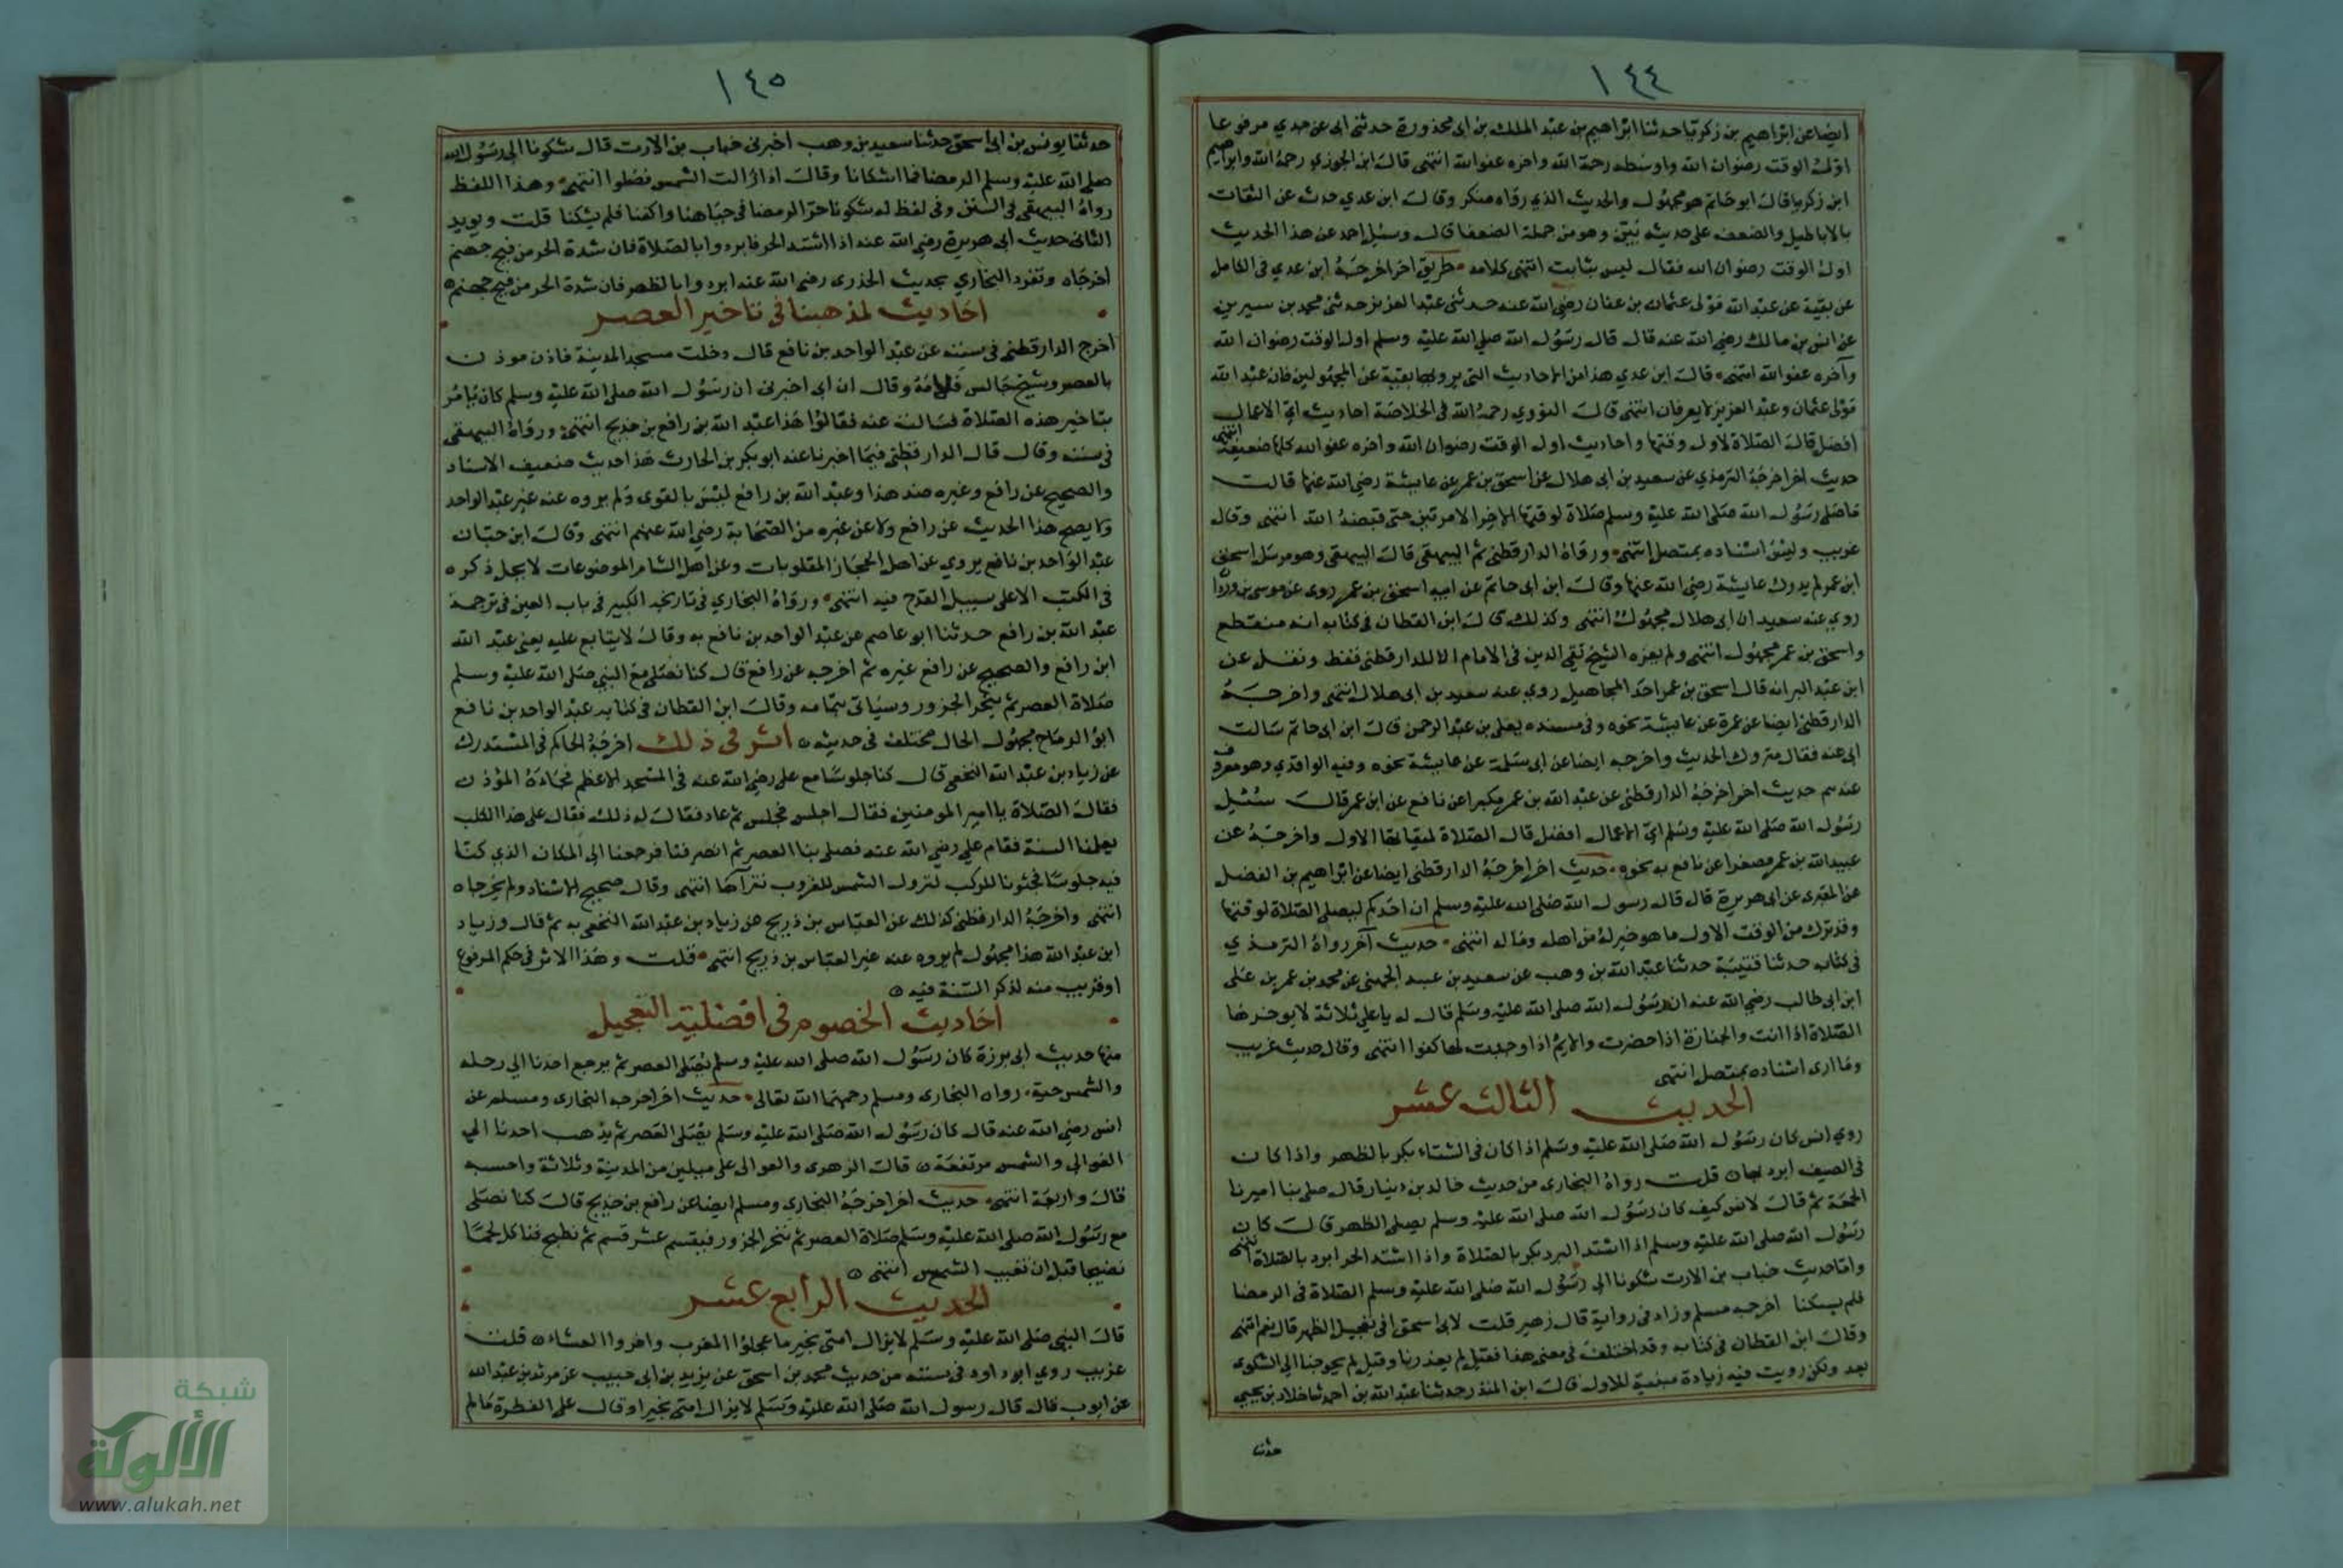 ١٤٤
أيضا عن ابراهيم بن زكريا حدثنا ابراهيم بن عبد الملك بن ابى محذورة حدثنى ابى عن جدي مرفوعا
اول الوقت رضوان الله واوسطه رحمة الله واخره عفو الله انتهى قال ابن الجوزي رحمه الله وابراهيم
ابن زكريا قال ابو حاتم هو مجهول والحديث الذي رواه منكر وقال ابن عدي حدث عن الثقات
بالاباطيل والضعف على حديثه بين وهو من جملة الضعفا قال وسئل احمد عن هذا الحديث
اول الوقت رضوان الله فقال ليس بثابت انتهى كلامه طريق اخر اخرجه ابن عدي فى الكامل
عن بقية عن عبد الله مولى عثمان بن عفان رضي الله عنه حدثنى عبد العزيز حدثنى محمد بن سيرين
عن انس بن مالك رضي الله عنه قال قال رسول الله صلى الله عليه وسلم اول الوقت رضوان الله
وآخره عفو الله انتهى قال ابن عدي هذا من الاحاديث التى يرويها بقية عن المجهولين فان عبد الله
مولى عثمان وعبد العزيز لا يعرفان انتهى قال النووي رحمه الله فى الخلاصة احاديث اي الاعمال
افضل قال الصلاة لاول وقتها واحاديث اول الوقت رضوان الله واخره عفو الله كلها ضعيفة انتهى
حديث اخر اخرجه الترمذي عن سعيد بن ابى هلال عن اسحق بن عمر عن عايشة رضي الله عنها قالت
ما صلى رسول الله صلى الله عليه وسلم صلاة لوقتها الاخر الا مرتين حتى قبضه الله انتهى وقال
غريب وليس اسناده بمتصل انتهى ورواه الدارقطنى ثم البيهقى قال البيهقى وهو مرسل اسحق
ابن عمر لم يدرك عايشة رضي الله عنها وقال ابن ابى حاتم عن ابيه اسحق بن عمر روى عن موسى بن وردا
روى عنه سعيد ان ابى هلال مجهول انتهى وكذلك قال ابن القطان فى كتابه انه منقطع
واسحق بن عمر مجهول انتهى ولم يعزه الشيخ تقي الدين فى الامام الا للدارقطنى فقط ونقل عن
ابن عبد البر انه قال اسحق بن عمر احد المجاهيل روى عنه سعيد بن ابى هلال انتهى واخرجه
الدارقطنى ايضا عن عمرة عن عايشة نحوه وفى مسنده يعلى بن عبد الرحمن قال ابن ابى حاتم سالت
ابى عنه فقال متروك الحديث واخرجه ايضا عن ابى سلمة عن عايشة نحوه وفيه الواقدي وهو معروف
عندهم حديث اخر اخرجه الدارقطنى عن عبد الله بن عمر مكبرا عن نافع عن ابن عمر قال سئل
رسول الله صلى الله عليه وسلم اي الاعمال افضل قال الصلاة لميقاتها الاول واخرجه عن
عبيد الله بن عمر مصغرا عن نافع به نحوه حديث اخر اخرجه الدارقطنى ايضا عن ابراهيم بن الفضل
عن المقبرى عن ابى هريرة قال قال رسول الله صلى الله عليه وسلم ان احدكم ليصلى الصلاة لوقتها
وقد ترك من الوقت الاول ما هو خير له من اهله وماله انتهى حديث آخر رواه الترمذي
فى كتابه حدثنا قتيبة حدثنا عبد الله بن وهب عن سعيد بن عبد الجهنى عن محمد بن عمر بن على
ابن ابى طالب رضي الله عنه ان رسول الله صلى الله عليه وسلم قال له يا على ثلاثة لا يوخرها
الصلاة اذا انت والجنازة اذا حضرت والايم اذا وجدت لها كفوا انتهى وقال حديث غريب
وما ارى اسناده بمتصل انتهى
الحديث الثالث عشر
روي انس كان رسول الله صلى الله عليه وسلم اذا كان فى الشتاء بكر بالظهر واذا كان
فى الصيف ابرد بها قلت رواه البخارى من حديث خالد بن دينار قال صلى بنا اميرنا
الجمعة ثم قال لانس كيف كان رسول الله صلى الله عليه وسلم يصلى الظهر قال كان
رسول الله صلى الله عليه وسلم اذا اشتد البرد بكر بالصلاة واذا اشتد الحر ابرد بالصلاة انتهى
واما حديث خباب بن الارت شكونا الى رسول الله صلى الله عليه وسلم الصلاة فى الرمضا
فلم يشكنا اخرجه مسلم وزاد فى رواية قال زهير قلت لابى اسحق افى تعجيل الظهر قال نعم انتهى
وقال ابن القطان فى كتابه وقد اختلف فى معنى هذا فقيل لم يعذرنا وقيل لم يحوجنا الى الشكوى
بعد ولكن رويت فيه زيادة مبينة للاول قال ابن المنذر حدثنا عبد الله بن احمد ثنا خلاد بن يحيى
حدثنا
١٤٥
حدثنا يونس بن ابى اسحق حدثنا سعيد بن وهب اخبرنى خباب بن الارت قال شكونا الى رسول الله
صلى الله عليه وسلم الرمضا فما اشكانا وقال اذا زالت الشمس فصلوا انتهى وهذا اللفظ
رواه البيهقى فى السنن وفى لفظ له شكونا حر الرمضا فى جباهنا واكفنا فلم يشكنا قلت ويويد
الثانى حديث ابى هريرة رضي الله عنه اذا اشتد الحر فابردوا بالصلاة فان شدة الحر من فيح جهنم
اخرجاه وتفرد البخاري بحديث الخذرى رضي الله عنه ابردوا بالظهر فان شدة الحر من فيح جهنم
احاديث لمذهبنا فى تاخير العصر
اخرج الدارقطنى فى سننه عن عبد الواحد بن نافع قال دخلت مسجد المدينة فاذن موذن
بالعصر وشيخ جالس فلامه وقال ان ابى اخبرنى ان رسول الله صلى الله عليه وسلم كان يامر
بتاخير هذه الصلاة فسالت عنه فقالوا هذا عبد الله بن رافع بن خديج انتهى ورواه البيهقى
فى سننه وقال قال الدارقطنى فيما اخبرنا عنه ابو بكر بن الحارث هذا حديث ضعيف الاسناد
والصحيح عن رافع وغيره ضد هذا وعبد الله بن رافع ليس بالقوى ولم يروه عنه غير عبد الواحد
ولا يصح هذا الحديث عن رافع ولا عن غيره من الصحابة رضي الله عنهم انتهى وقال ابن حبان
عبد الواحد بن نافع يروي عن اهل الحجاز المقلوبات وعن اهل الشام الموضوعات لا يحل ذكره
فى الكتب الا على سبيل القدح فيه انتهى ورواه البخاري فى تاريخه الكبير فى باب العين فى ترجمة
عبد الله بن رافع حدثنا ابو عاصم عن عبد الواحد بن نافع به وقال لا يتابع عليه يعنى عبد الله
ابن رافع والصحيح عن رافع غيره ثم اخرجه عن رافع قال كنا نصلى مع النبي صلى الله عليه وسلم
صلاة العصر ثم ينحر الجزور وسياتى بتمامه وقال ابن القطان فى كتابه عبد الواحد بن نافع
ابو الرماح مجهول الحال مختلف فى حديثه اثر فى ذلك اخرجه الحاكم فى المستدرك
عن زياد بن عبد الله النخعى قال كنا جلوسا مع على رضي الله عنه فى المسجد الاعظم فجاءه المؤذن
فقال الصلاة يا امير المومنين فقال اجلس فجلس ثم عاد فقال له ذلك فقال على هذا الكلب
يعلمنا السنة فقام علي رضي الله عنه فصلى بنا العصر ثم انصرفنا فرجعنا الى المكان الذي كنا
فيه جلوسا فجثونا للركب لنزول الشمس للغروب نتراها انتهى وقال صحيح الاسناد ولم يخرجاه
انتهى واخرجه الدارقطنى كذلك عن العباس بن ذريح عن زياد بن عبد الله النخعى به ثم قال وزياد
ابن عبد الله هذا مجهول لم يروه عنه غير العباس بن ذريح انتهى قلت وهذا الاثر فى حكم المرفوع
او قريب منه لذكر السنة فيه
احاديث الخصوم فى افضلية التعجيل
منها حديث ابى برزة كان رسول الله صلى الله عليه وسلم يصلى العصر ثم يرجع احدنا الى رحله
والشمس حية رواه البخارى ومسلم رحمهما الله تعالى حديث اخر اخرجه البخارى ومسلم عن
انس رضي الله عنه قال كان رسول الله صلى الله عليه وسلم يصلى العصر ثم يذهب احدنا الى
العوالى والشمس مرتفعة قال الزهرى والعوالى على ميلين من المدينة وثلاثة واحسبه
قال واربعة انتهى حديث اخر اخرجه البخارى ومسلم ايضا عن رافع بن خديج قال كنا نصلى
مع رسول الله صلى الله عليه وسلم صلاة العصر ثم ننحر الجزور فيقسم عشر قسم ثم نطبخ فناكل لحما
نضيجا قبل ان تغيب الشمس انتهى
الحديث الرابع عشر
قال النبي صلى الله عليه وسلم لا يزال امتى بخير ما عجلوا المغرب واخروا العشاء قلت
غريب روي ابو داود فى سننه من حديث محمد بن اسحق عن يزيد بن ابى حبيب عن مرثد بن عبد الله
عن ابى ايوب قال قال رسول الله صلى الله عليه وسلم لا يزال امتى بخير او قال على الفطرة ما لم
شبكة
الألوكة
www.alukah.net